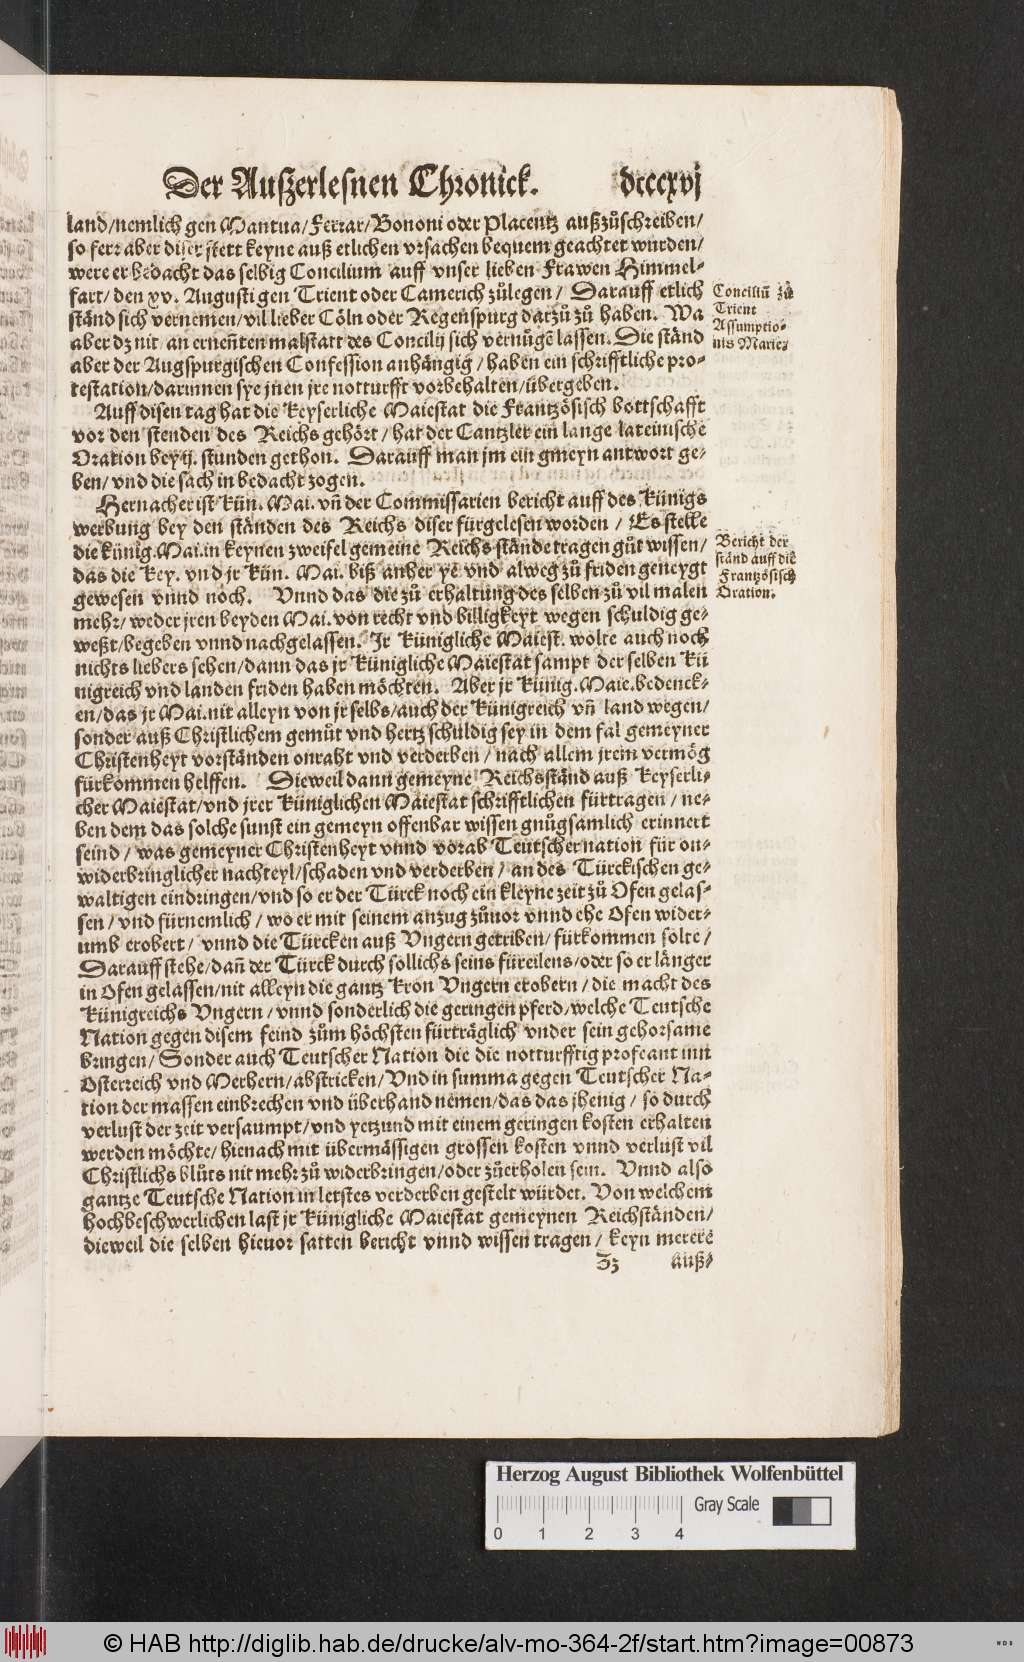 Der Auszerlesnen Chronick. dccccxvj
land/nemlich gen Mantua/Ferrar/Bononi oder Placentz außzůschreiben/
so ferr aber diser stett keyne auß etlichen vrsachen bequem geachtet wurden/
were er bedacht das selbig Concilium auff vnser lieben Frawen Himmel-
fart/den xv. Augusti gen Trient oder Camerich zůlegen/ Darauff etlich
ständ sich vernemen/vil lieber Cöln oder Regenspurg darzů zů haben. Wa
aber dz nit/an erneñten malstatt des Concilij sich vernůgẽ lassen. Die ständ
aber der Augspurgischen Confession anhängig/haben ein schrifftliche pro-
testation/darinnen sye jnen jre notturfft vorbehalten/übergeben.
Conciliũ zů
Trient
Assumptio-
nis Marie
Auff disen tag hat die Keyserliche Maiestat die Frantzösisch bottschafft
vor den stenden des Reichs gehört/hat der Cantzler ein lange lateinische
Oration bey ij. stunden gethon. Darauff man jm ein gmeyn antwort ge-
ben/vnd die sach in bedacht zogen.
Hernacher ist Kün. Mai. vñ der Commissarien bericht auff des Künigs
werbung bey den ständen des Reichs diser fürgelesen worden/Es stelle
die künig. Mai. in keynen zweifel gemeine Reichs stände tragen gůt wissen/
das die Key. vnd jr Kün. Mai. biß anher ye vnd alweg zů friden geneygt
gewesen vnnd noch. Vnnd das die zů erhaltung des selben zů vil malen
mehr/weder jren beyden Mai. von recht vnd billigkeyt wegen schuldig ge-
weßt/begeben vnnd nachgelassen. Jr Künigliche Maiest. wolte auch noch
nichts liebers sehen/dann das jr Künigliche Maiestat sampt der selben Kü
nigreich vnd landen friden haben möchten. Aber jr Künig. Maie. bedenck-
en/das jr Mai. nit alleyn von jr selbs/auch der Künigreich vñ land wegen/
sonder auß Christlichem gemůt vnd hertz schuldig sey in dem fal gemeyner
Christenheyt vorständen onraht vnd verderben/nach allem jrem vermög
fürkommen helffen. Dieweil dann gemeyne Reichsständ auß Keyserli-
cher Maiestat/vnd jrer Küniglichen Maiestat schrifftlichen fürtragen/ne-
ben dem das solche sunst ein gemeyn offenbar wissen gnůgsamlich erinnert
seind/was gemeyner Christenheyt vnnd vorab Teutscher nation für on-
widerbringlicher nachteyl/schaden vnd verderben/an des Türckischen ge-
waltigen eindringen/vnd so er der Türck noch ein kleyne zeit zů Ofen gelas-
sen/vnd fürnemlich/wo er mit seinem anzug zůuor vnnd ehe Ofen wider-
umb erobert/vnnd die Türcken auß Vngern getriben/fürkommen solte/
Darauff stehe/dañ der Türck durch sollichs seins füreilens/oder so er länger
in Ofen gelassen/nit alleyn die gantz Kron Vngern erobern/die macht des
Künigreichs Vngern/vnnd sonderlich die geringen pferd/welche Teutsche
Nation gegen disem feind zům höchsten fürträglich vnder sein gehorsame
bringen/Sonder auch Teutscher Nation die die notturfftig profeant inn
Osterreich vnd Merhern/abstricken/Vnd in summa gegen Teutscher Na-
tion der massen einbrechen vnd überhand nemen/das das jhenig/so durch
verlust der zeit versaumpt/vnd yetzund mit einem geringen kosten erhalten
werden möchte/hienach mit übermässigen grossen kosten vnnd verlust vil
Christlichs blůts nit mehr zů widerbringen/oder zůerholen sein. Vnnd also
gantze Teutsche Nation in letstes verderben gestelt würdet. Von welchem
hochbeschwerlichen last jr Künigliche Maiestat gemeynen Reichständen/
dieweil die selben hieuor satten bericht vnnd wissen tragen/keyn merere
Bericht der
ständ auff die
Frantzösisch
Oration.
Zz auß-
Herzog August Bibliothek Wolfenbüttel
Gray Scale
0 1 2 3 4
© HAB http://diglib.hab.de/drucke/alv-mo-364-2f/start.htm?image=00873